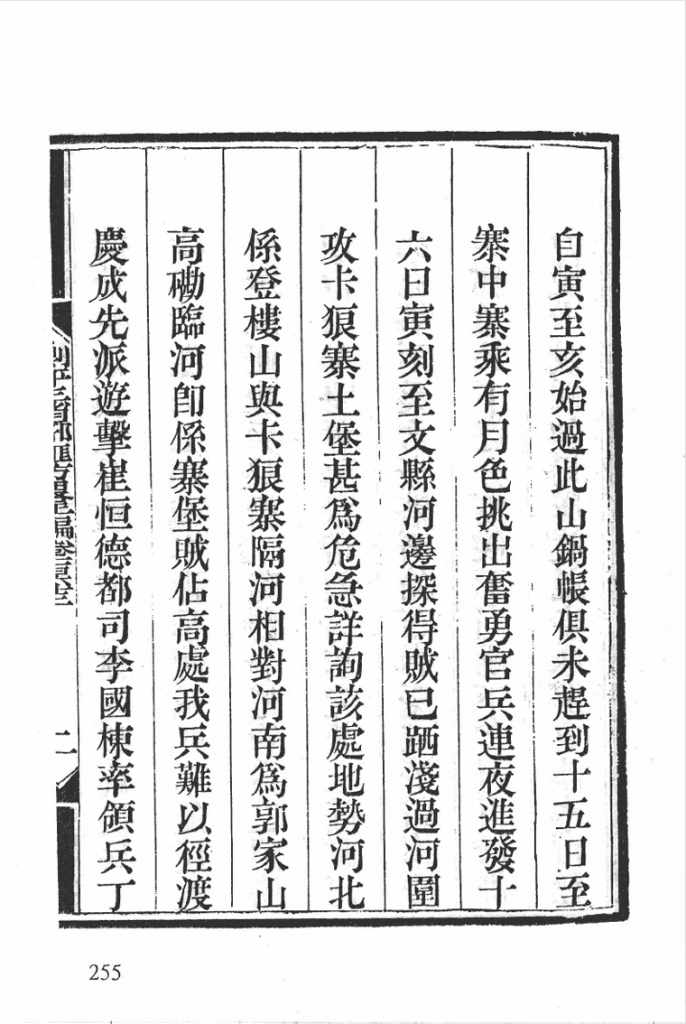 自寅至亥始過此山鍋帳俱未趕到十五日至
寨中寨乘有月色挑出奮勇官兵連夜進發十
六日寅刻至文縣河邊探得賊已跴淺過河圍
攻卡狼寨土堡甚爲危急詳詢該處地勢河北
係登樓山與卡狼寨隔河相對河南爲郭家山
高磡臨河卽係寨堡賊佔高處我兵難以徑渡
慶成先派遊擊崔恒德都司李國棟率領兵丁
二
255